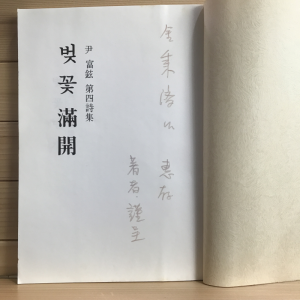 金秉
惠存
著者 謹呈
尹 富鉉 第四詩集
벚꽃 滿開